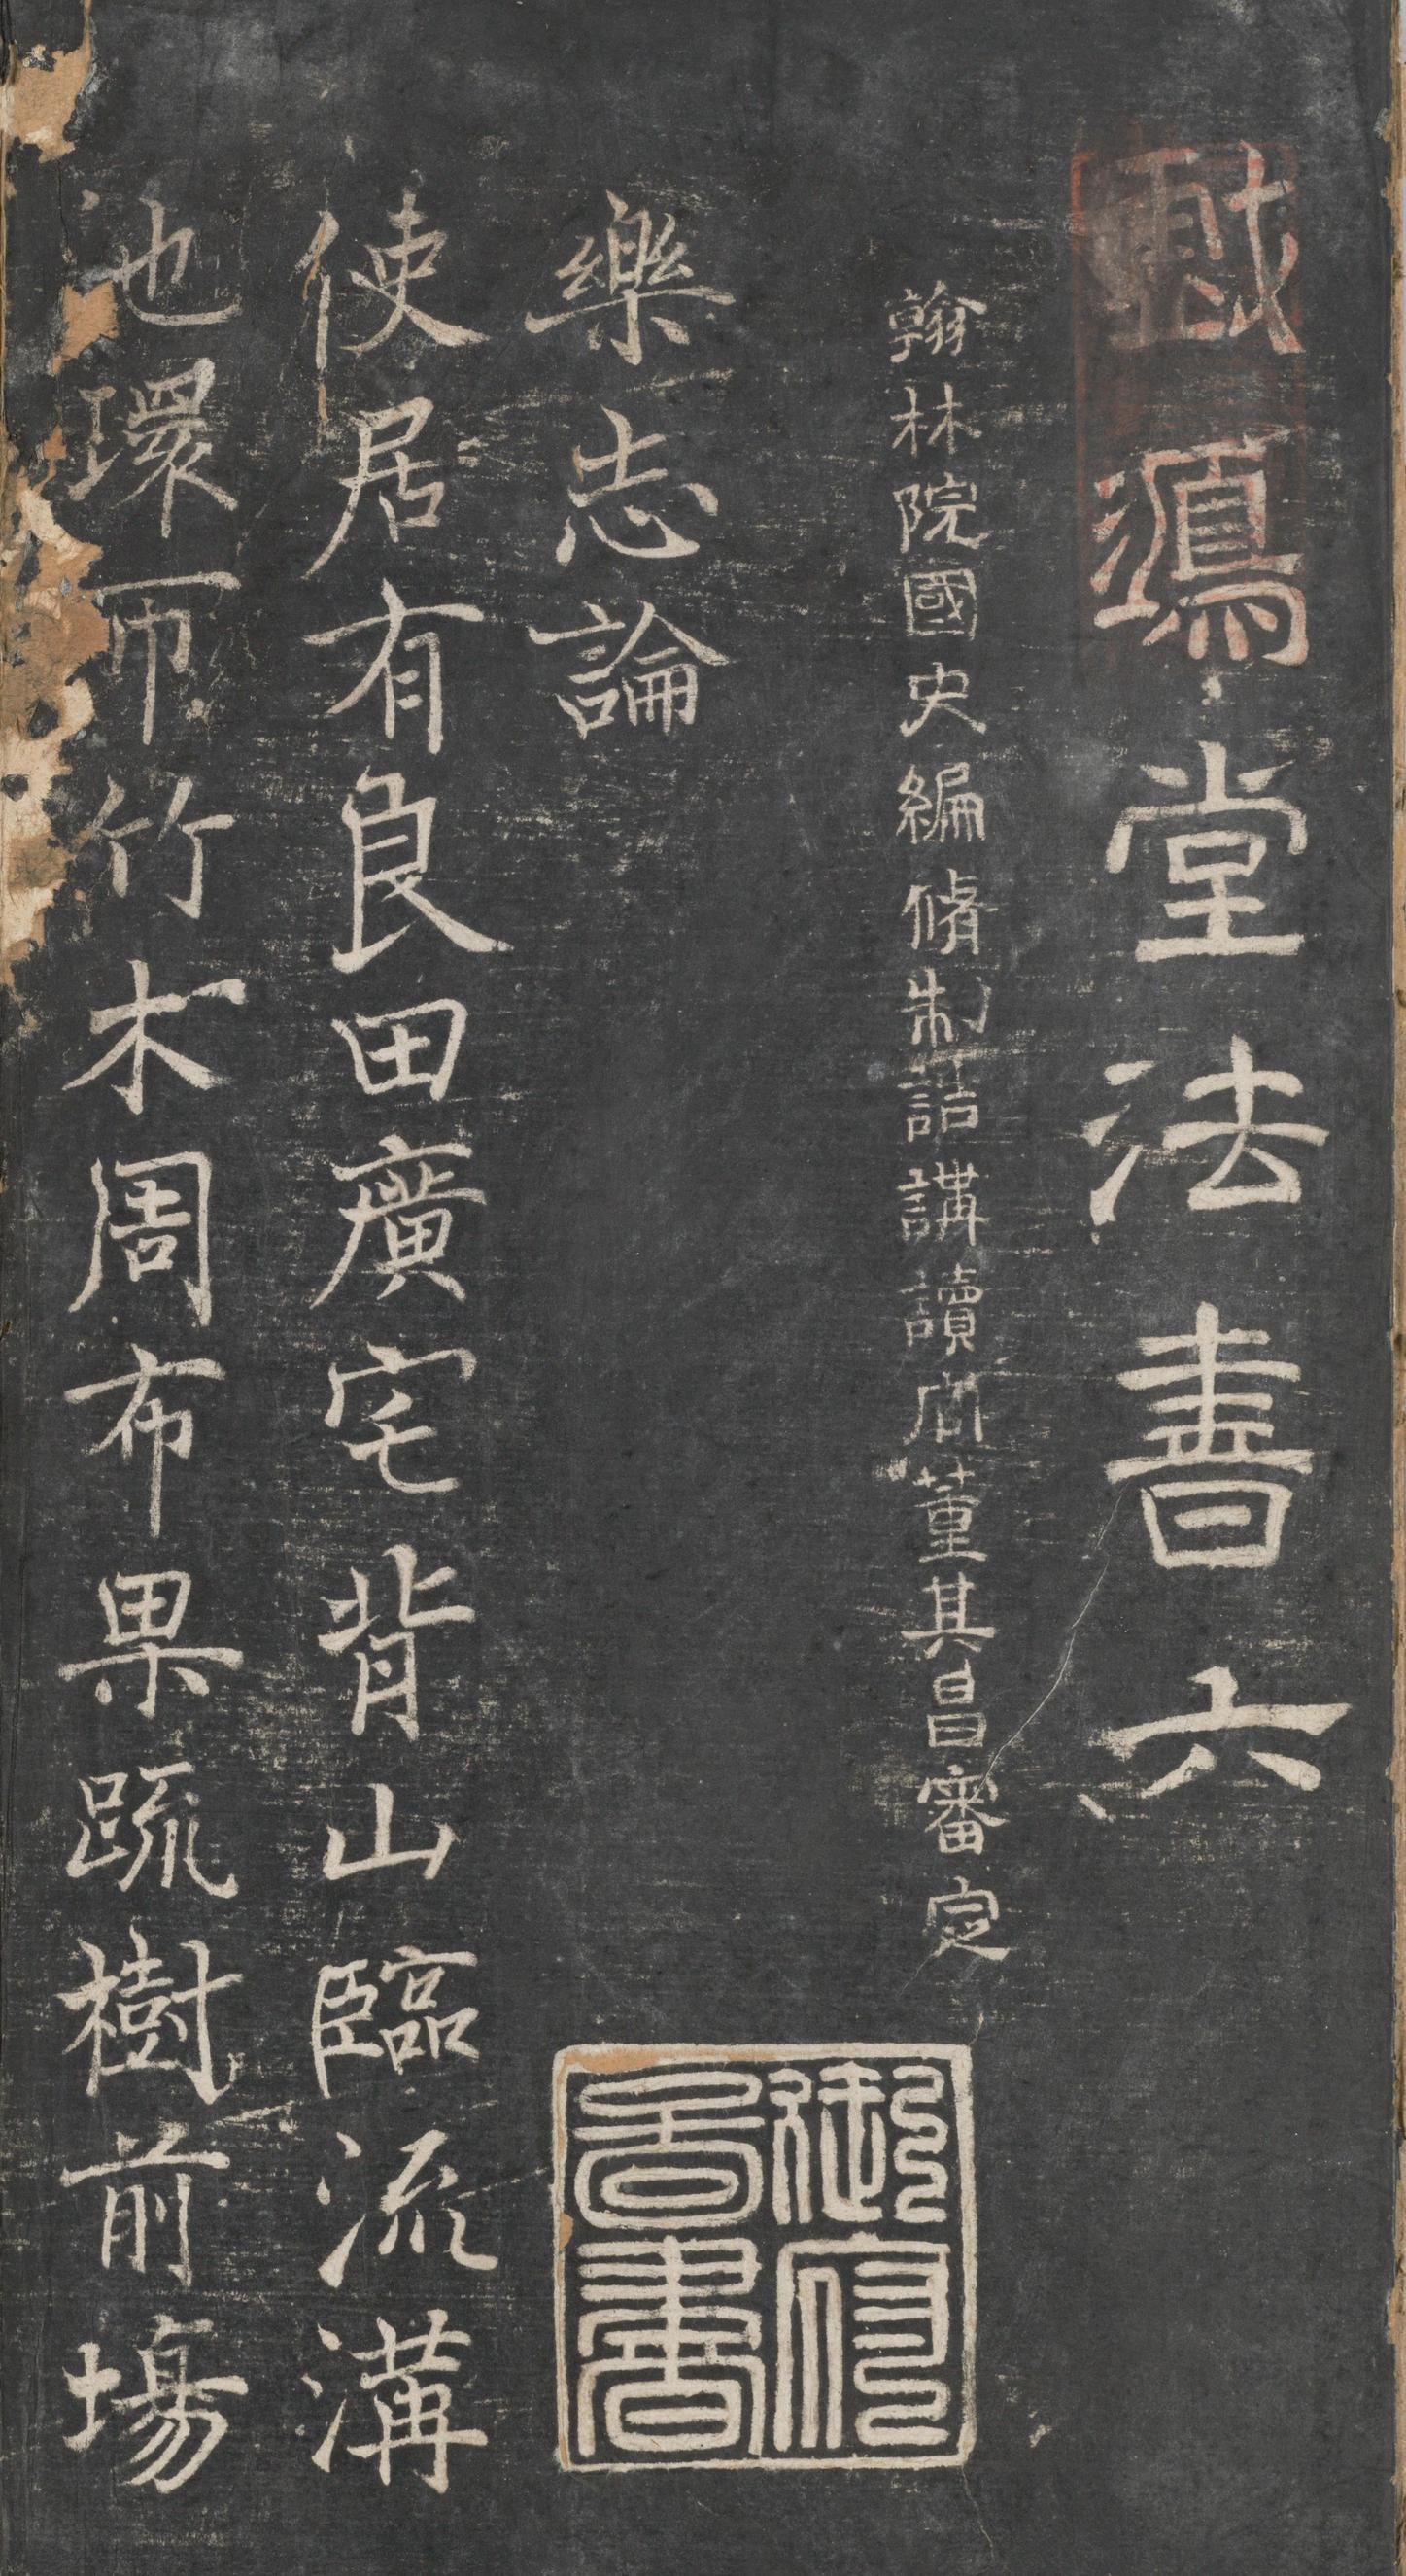 戲鴻堂法書六
翰林院國史編脩制誥講讀官董其昌審定
御府圖書
樂志論
使居有良田廣宅背山臨流溝
池環帀竹木周布果䟽樹前場